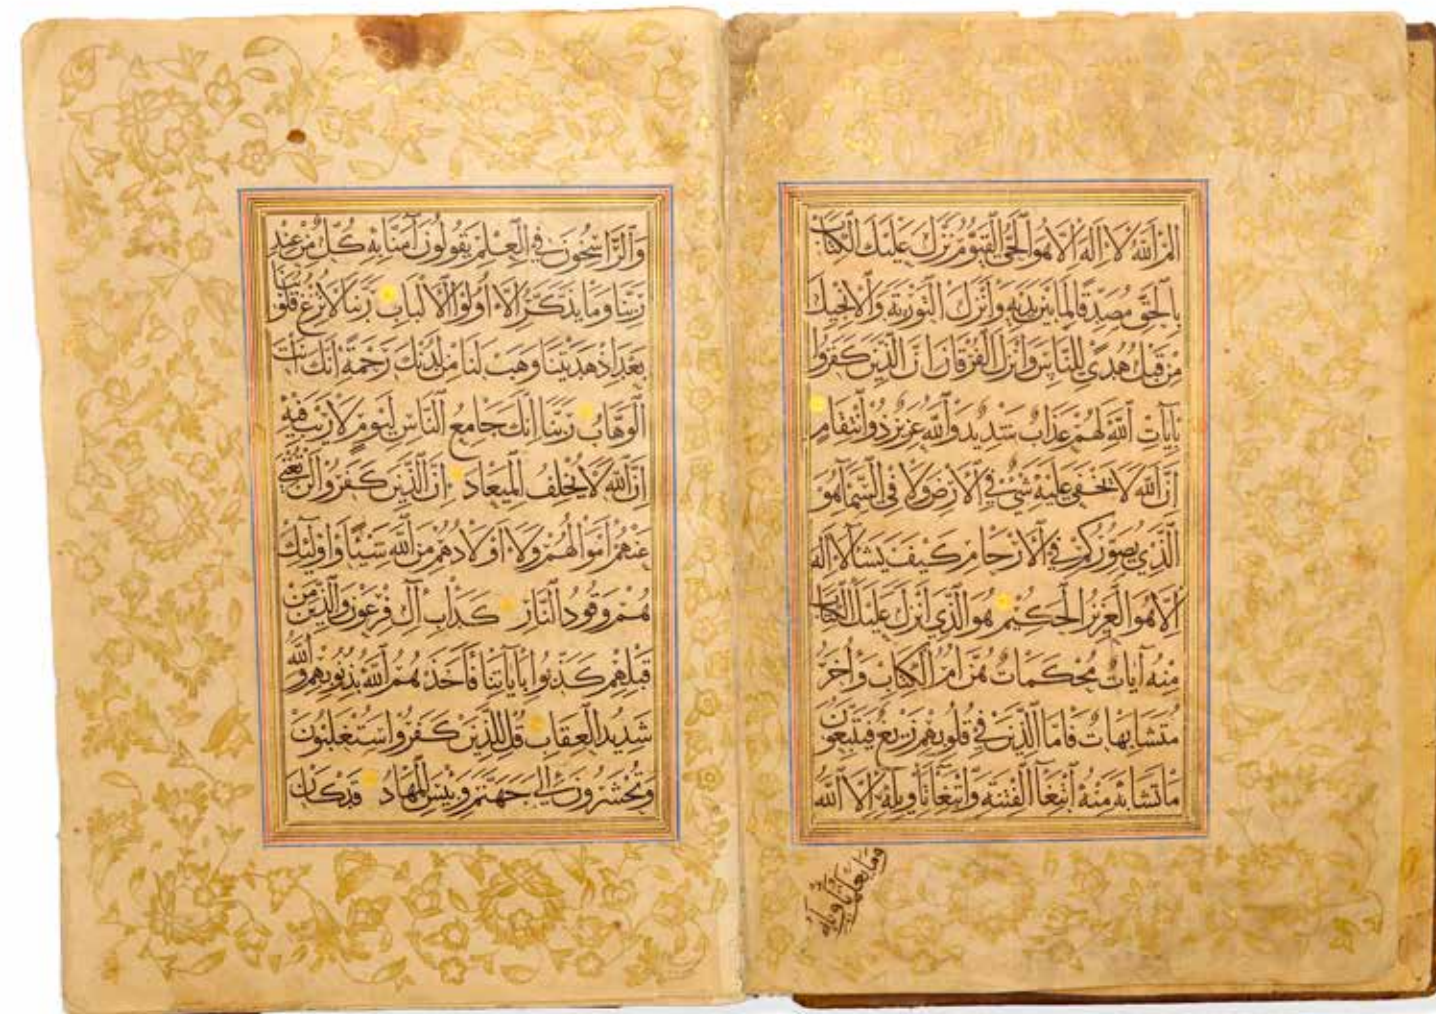 الم اللَّهُ لَا إِلَهَ إِلَّا هُوَ الْحَيُّ الْقَيُّومُ نَزَّلَ عَلَيْكَ الْكِتَابَ
بِالْحَقِّ مُصَدِّقًا لِمَا بَيْنَ يَدَيْهِ وَأَنْزَلَ التَّوْرَيةَ وَالْإِنْجِيلَ
مِنْ قَبْلُ هُدًى لِلنَّاسِ وَأَنْزَلَ الْفُرْقَانَ إِنَّ الَّذِينَ كَفَرُوا
بِآيَاتِ اللَّهِ لَهُمْ عَذَابٌ شَدِيدٌ وَاللَّهُ عَزِيزٌ ذُو انْتِقَامٍ
إِنَّ اللَّهَ لَا يَخْفَى عَلَيْهِ شَيْءٌ فِي الْأَرْضِ وَلَا فِي السَّمَآءِ هُوَ
الَّذِي يُصَوِّرُكُمْ فِي الْأَرْحَامِ كَيْفَ يَشَآءُ لَا إِلَهَ
إِلَّا هُوَ الْعَزِيزُ الْحَكِيمُ هُوَ الَّذِي أَنْزَلَ عَلَيْكَ الْكِتَابَ
مِنْهُ آيَاتٌ مُحْكَمَاتٌ هُنَّ أُمُّ الْكِتَابِ وَأُخَرُ
مُتَشَابِهَاتٌ فَأَمَّا الَّذِينَ فِي قُلُوبِهِمْ زَيْغٌ فَيَتَّبِعُونَ
مَا تَشَابَهَ مِنْهُ ابْتِغَآءَ الْفِتْنَةِ وَابْتِغَآءَ تَأْوِيلِهِ إِلَّا اللَّهُ
وَمَا يَعْلَمُ تَأْوِيلَهُ
وَالرَّاسِخُونَ فِي الْعِلْمِ يَقُولُونَ آمَنَّا بِهِ كُلٌّ مِنْ عِنْدِ
رَبِّنَا وَمَا يَذَّكَّرُ إِلَّا أُولُوا الْأَلْبَابِ رَبَّنَا لَا تُزِغْ قُلُوبَنَا
بَعْدَ إِذْ هَدَيْتَنَا وَهَبْ لَنَا مِنْ لَدُنْكَ رَحْمَةً إِنَّكَ أَنْتَ
الْوَهَّابُ رَبَّنَا إِنَّكَ جَامِعُ النَّاسِ لِيَوْمٍ لَا رَيْبَ فِيهِ
إِنَّ اللَّهَ لَا يُخْلِفُ الْمِيعَادَ إِنَّ الَّذِينَ كَفَرُوا لَنْ تُغْنِيَ
عَنْهُمْ أَمْوَالُهُمْ وَلَا أَوْلَادُهُمْ مِنَ اللَّهِ شَيْئًا وَأُولَئِكَ
هُمْ وَقُودُ النَّارِ كَدَأْبِ آلِ فِرْعَوْنَ وَالَّذِينَ مِنْ
قَبْلِهِمْ كَذَّبُوا بِآيَاتِنَا فَأَخَذَهُمُ اللَّهُ بِذُنُوبِهِمْ وَاللَّهُ
شَدِيدُ الْعِقَابِ قُلْ لِلَّذِينَ كَفَرُوا سَتُغْلَبُونَ
وَتُحْشَرُونَ إِلَى جَهَنَّمَ وَبِئْسَ الْمِهَادُ قَدْ كَانَ